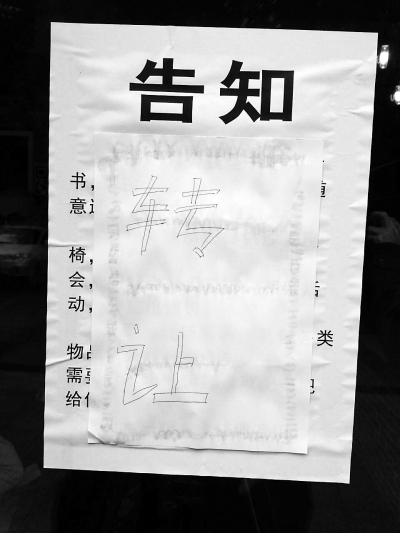 告知
书，
意
转
椅，
会，
动，
类
让
物品
需要
给